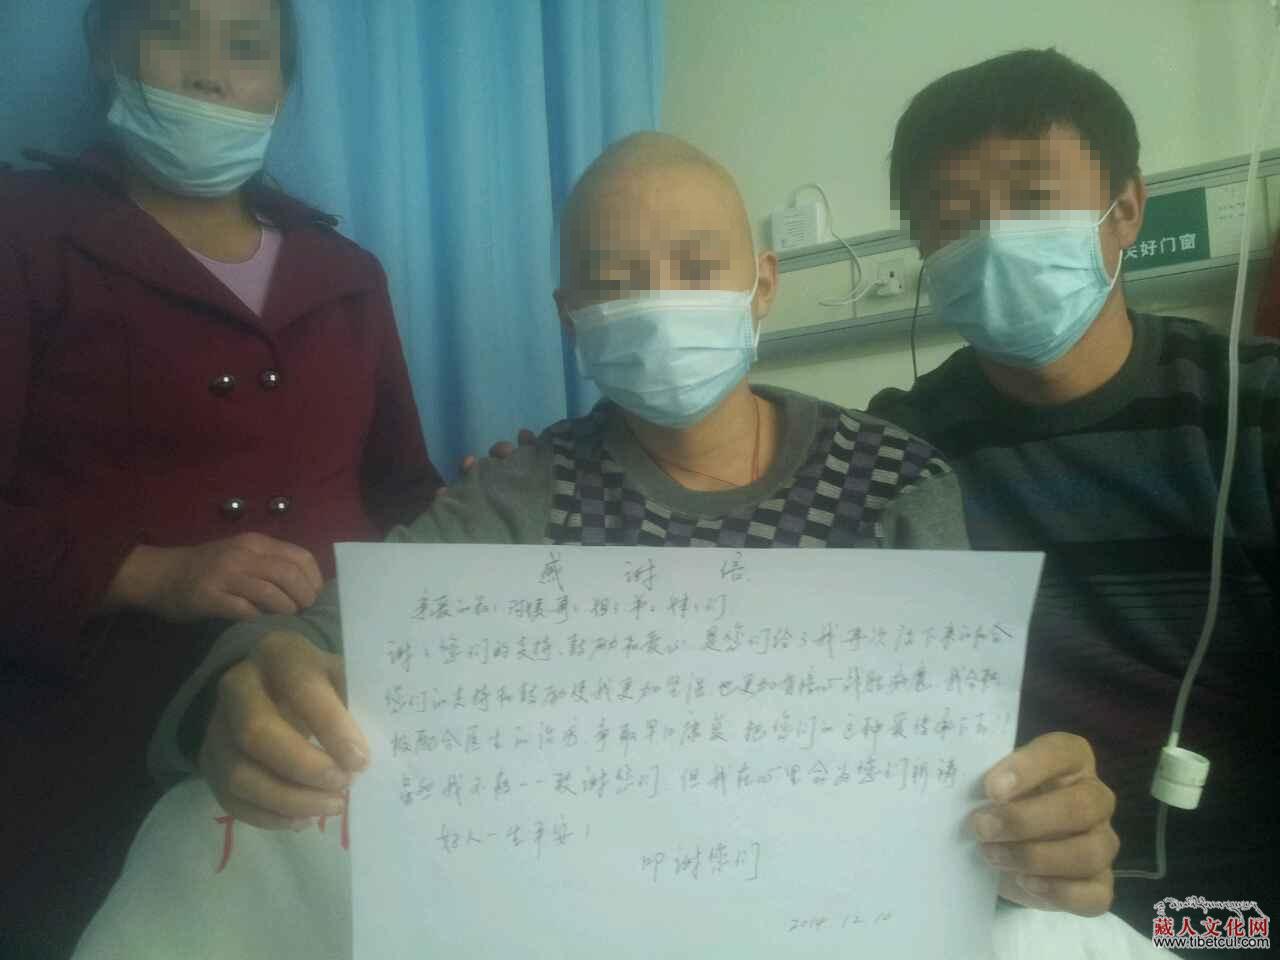 关好门窗
感谢信
谢谢您们的支持、鼓励和爱心,是您们给了我再次活下来的机会
您们的支持和鼓励使我更加坚强也更加有信心战胜病患,我会积
极配合医生的治疗,争取早日康复,把您们的这种爱传承下去!!
虽然我不能一一致谢您们,但我在心里会为您们祈祷
好人一生平安!
叩谢您们
2014.12.10
藏人文化网
www.tibetcul.com